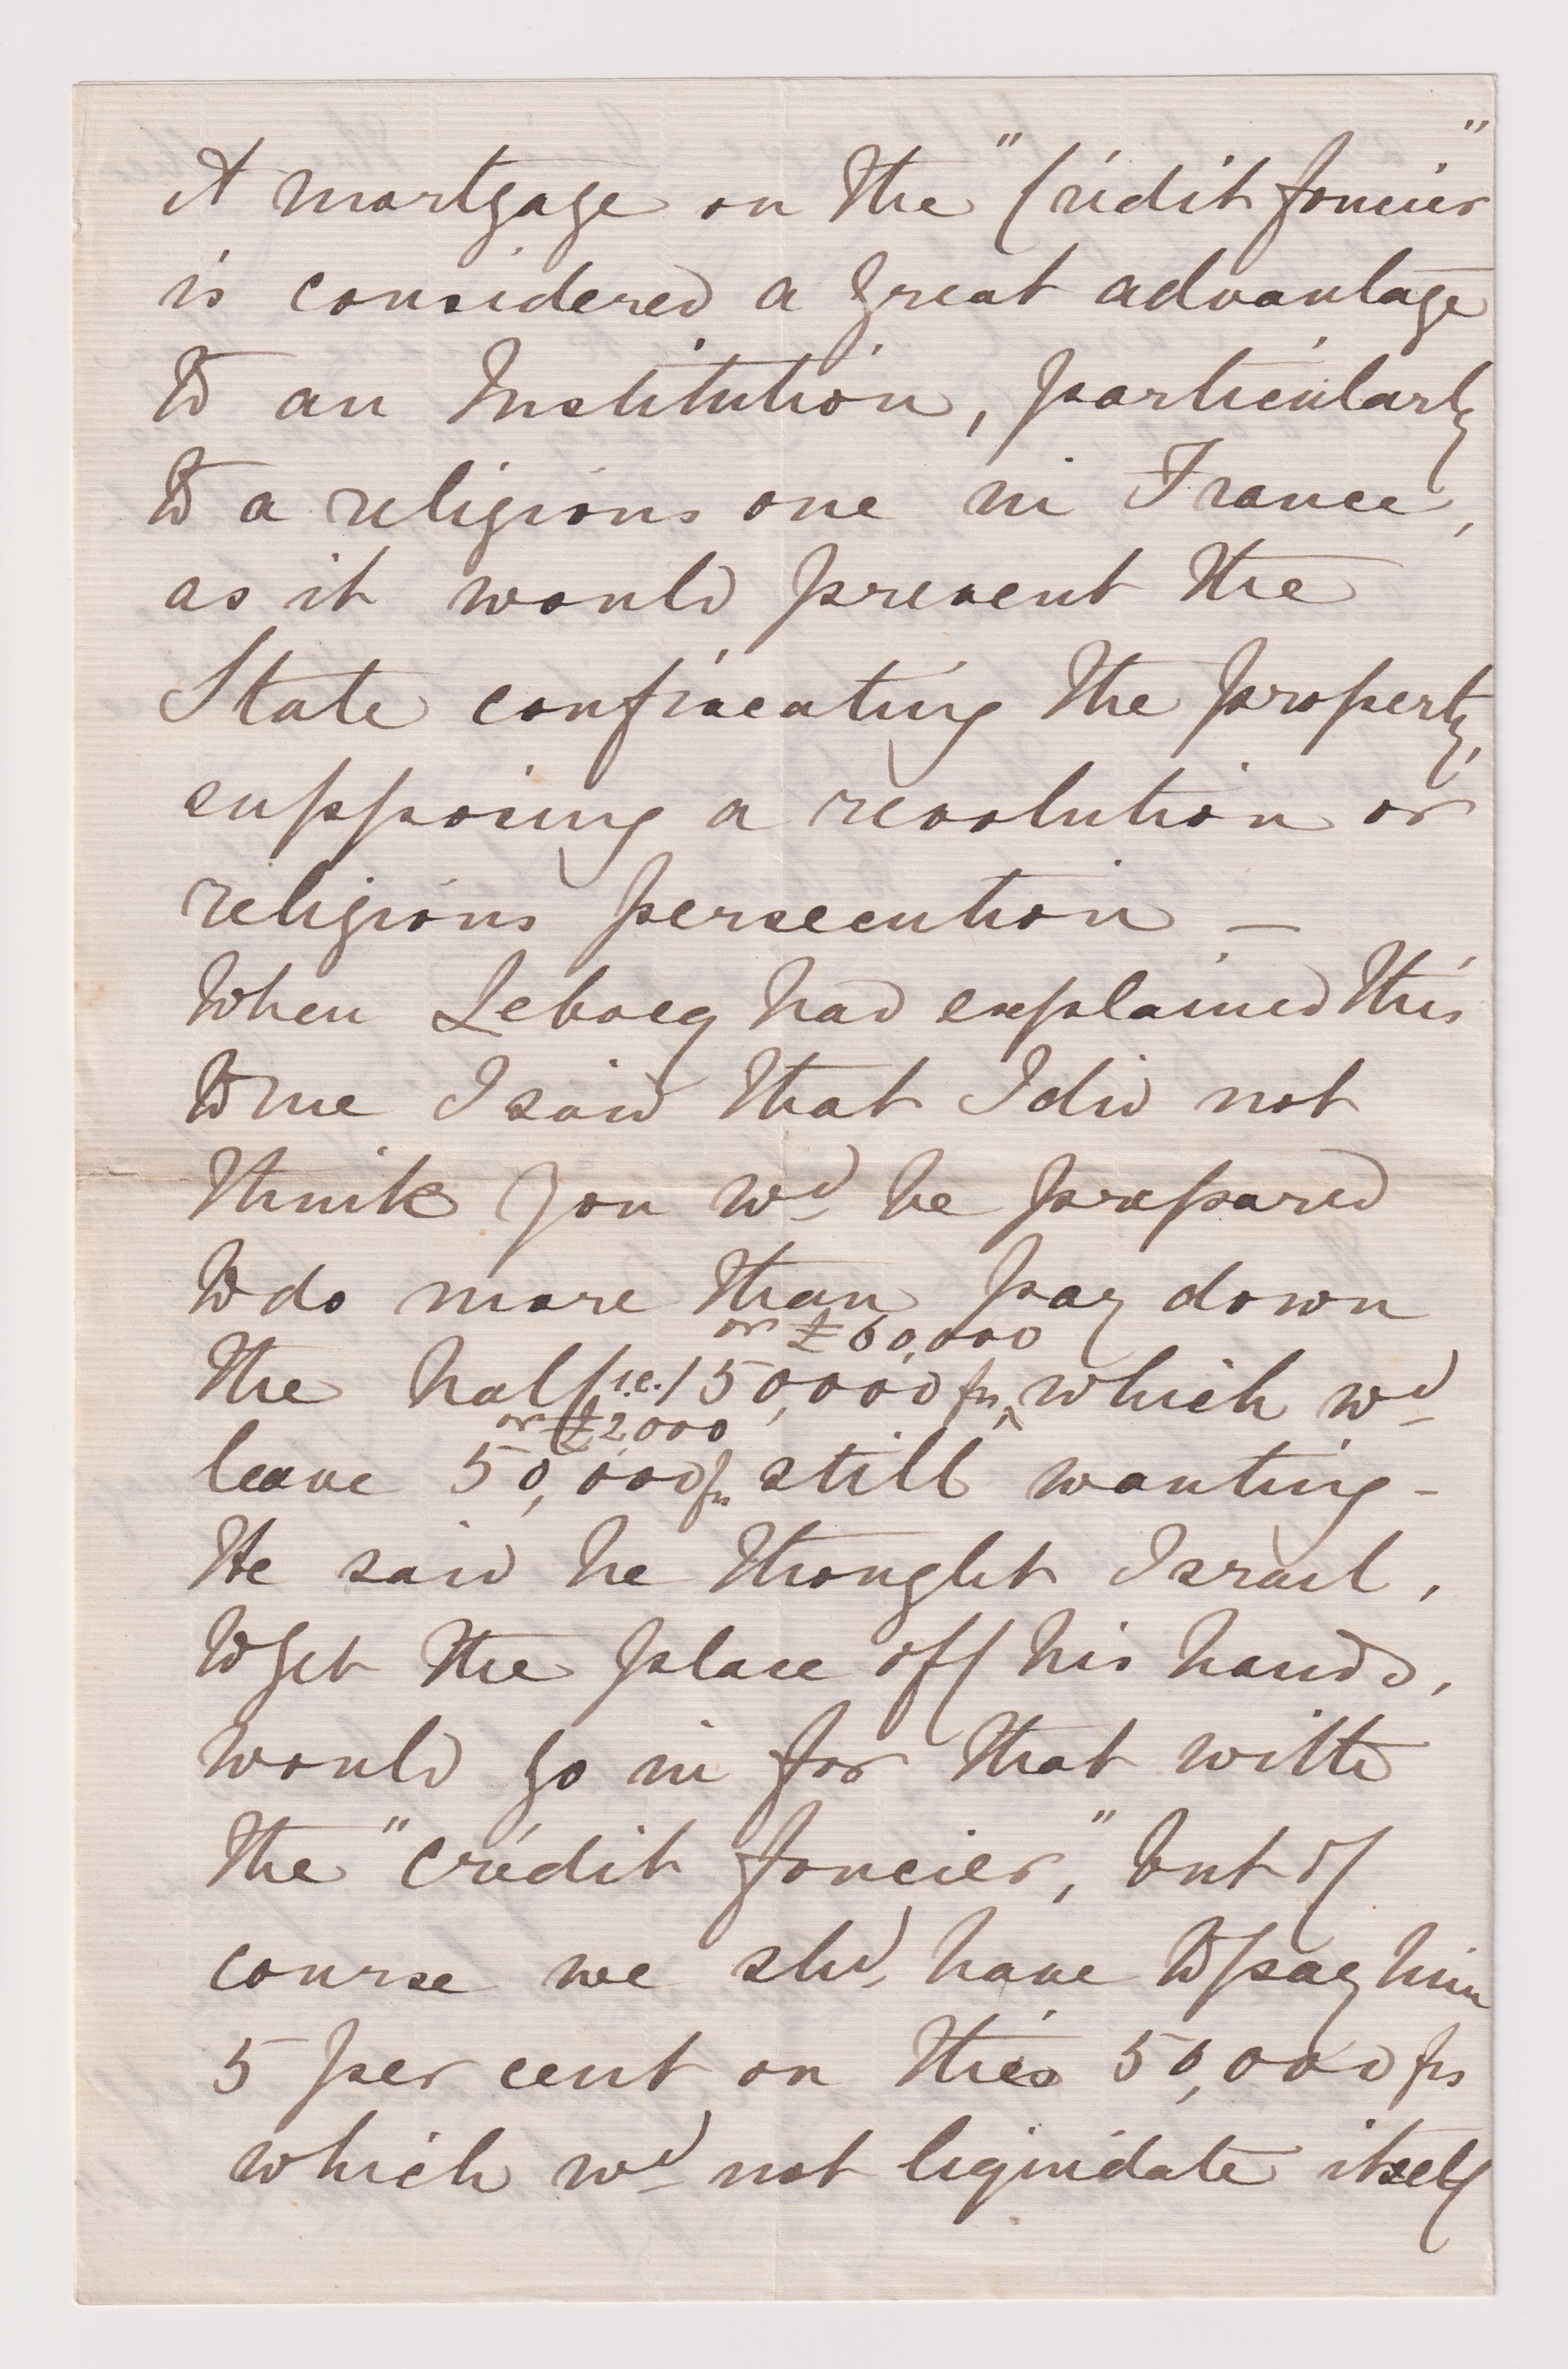 A mortgage on the "Crédit foncier"
is considered a great advantage
to an Institution, particularly
to a religious one in France,
as it would prevent the
State confiscating the property,
supposing a revolution or
religious persecution –
When Lebocq had explained this
to me I said that I did not
think you wd. be prepared
to do more than pay down
or £60,000
the half i.e. 150,000 frs, which wd
or £2,000
leave 50,000 frs still wanting –
He said he thought Israel,
to get the place off his hands,
would go in for that with
the "crédit foncier," but of
course we shd. have to pay him
5 per cent on this 50,000 frs
which wd not liquidate itself